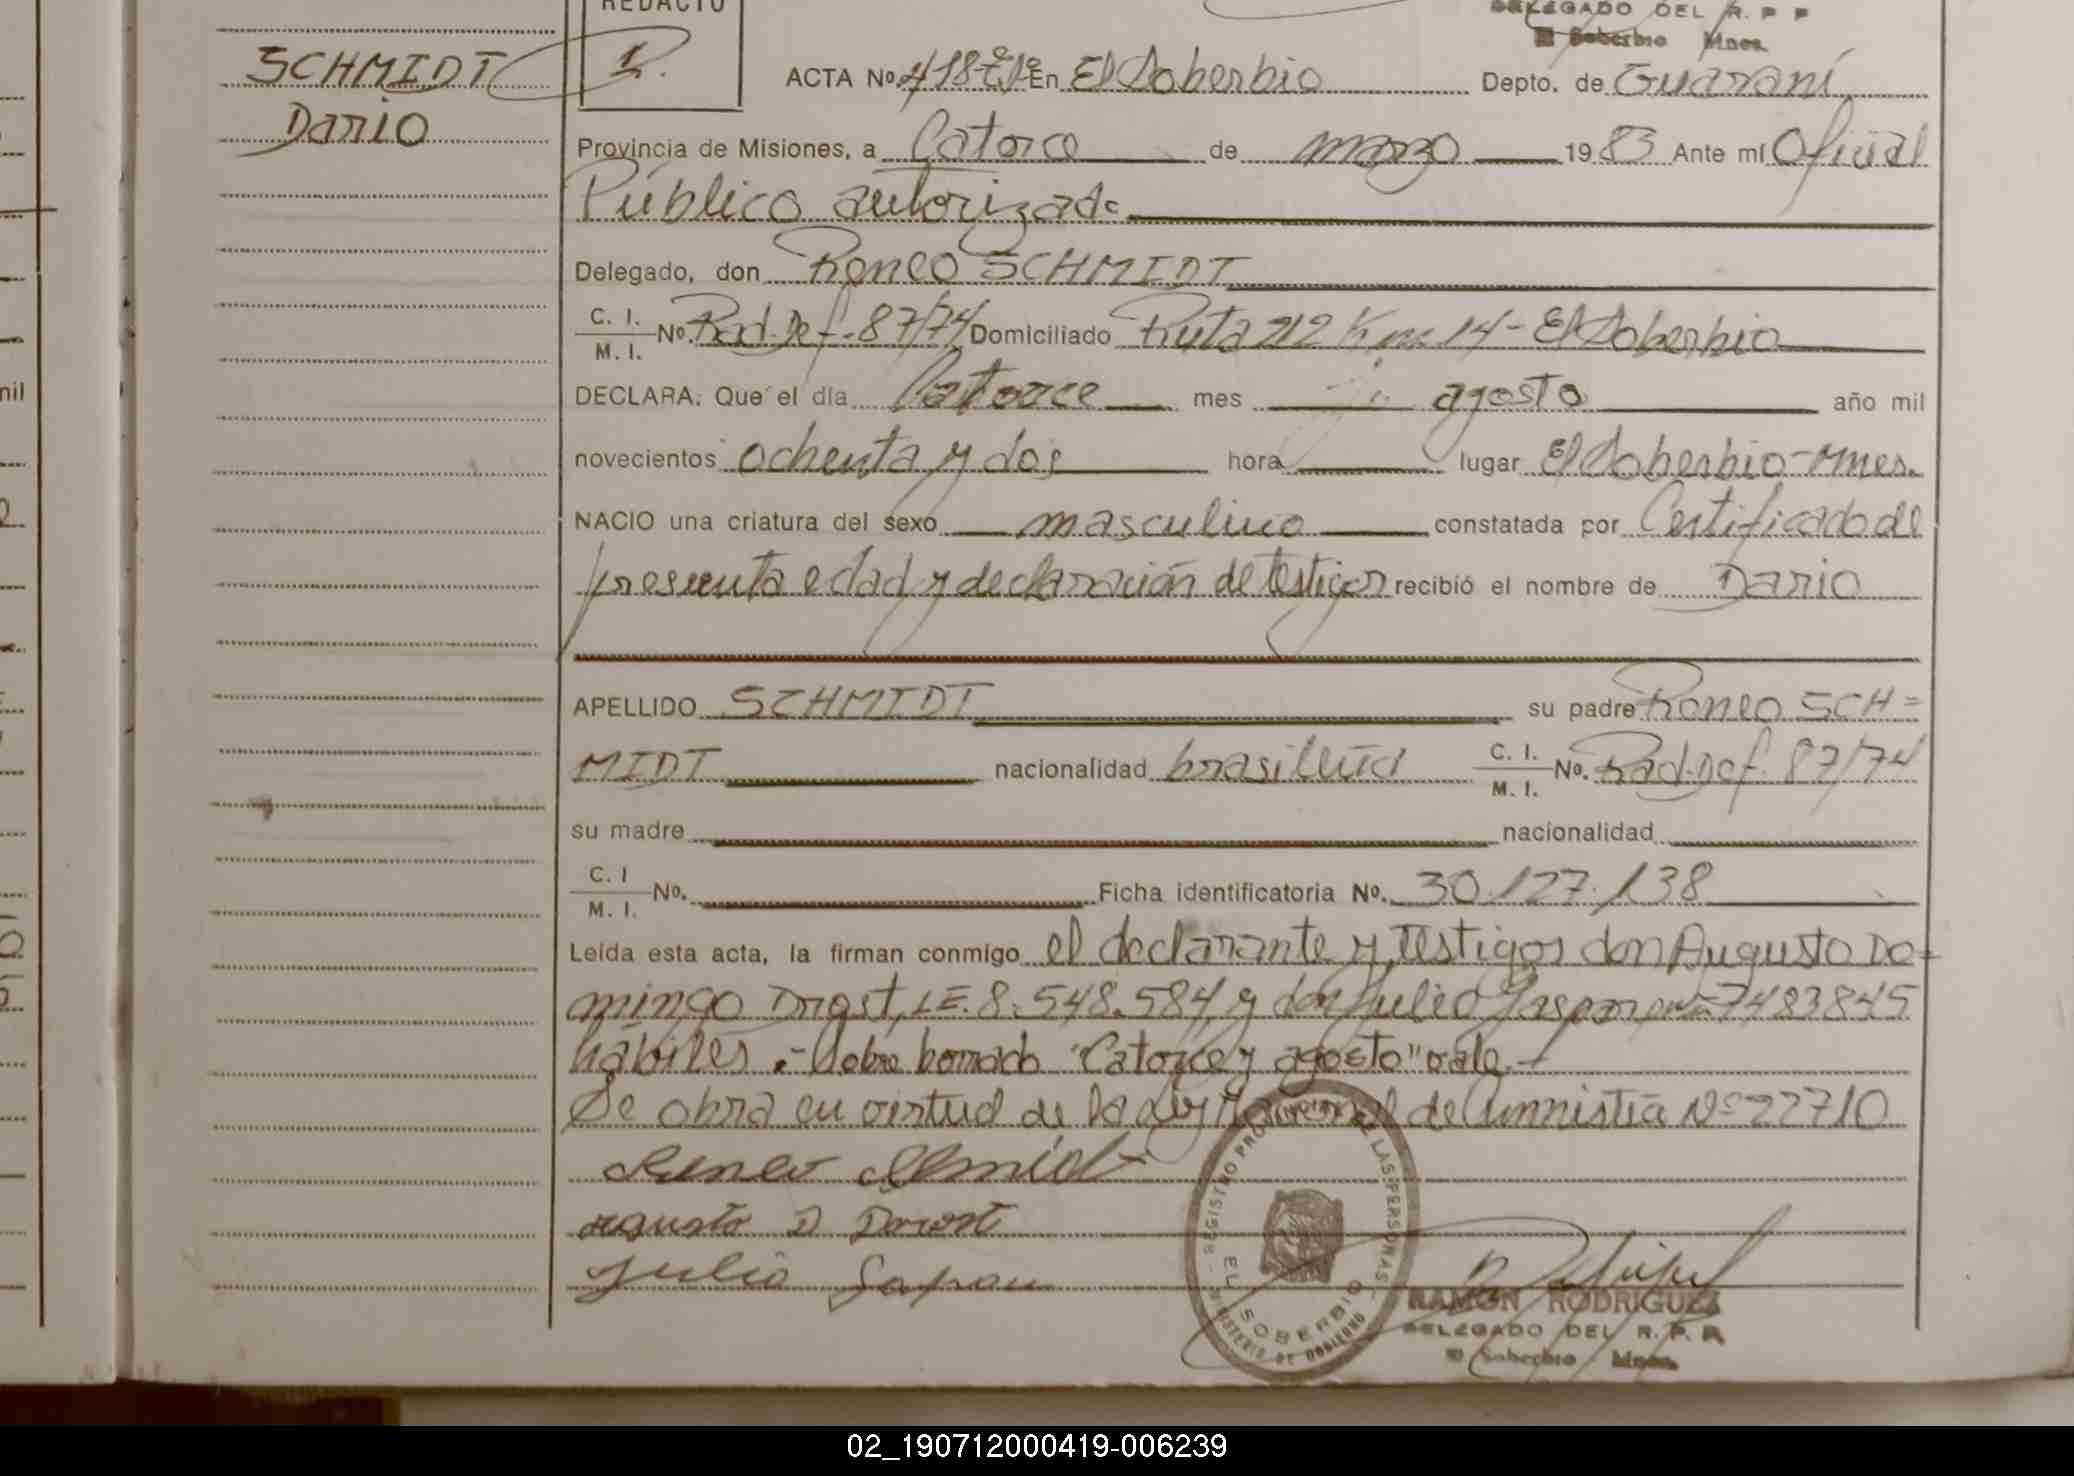 REDACTO
DELEGADO DEL R. P. P
El Soberbio Mnes.
SCHMIDT
Dario
R.
ACTA Nº 418-tº1º En El Soberbio Depto. de Guaraní
Provincia de Misiones, a Catorce de marzo 1983 Ante mí Oficial
Público autorizado
Delegado, don Roneo SCHMIDT
C. I. / M. I. Nº. Rad. Def. 87/74 Domiciliado Ruta 212 Km. 14 - El Soberbio
DECLARA: Que el día Catorce mes agosto año mil
novecientos ochenta y dos hora lugar El Soberbio-Mnes.
NACIO una criatura del sexo masculino constatada por Certificado de
presunta edad y declaración de testigos recibió el nombre de Dario
APELLIDO SCHMIDT su padre Roneo SCH=
MIDT nacionalidad brasileña C. I. / M. I. Nº. Rad. Def. 87/74
su madre nacionalidad
C. I / M. I. Nº. Ficha identificatoria Nº. 30.127.138
Leída esta acta, la firman conmigo el declarante y testigos don Augusto Do-
mingo Drost, LE. 8.548.584, y don Julio 7483845
hábiles.- Sobre borrado "Catorce y agosto" vale.-
Se obra en virtud de la ley Nacional de Amnistia Nº 22710
Roneo Schmidt
Augusto D Dorost
Julio
REGISTRO PROVINCIAL DE LAS PERSONAS
EL SOBERBIO
MINISTERIO DE GOBIERNO
RAMON RODRIGUEZ
DELEGADO DEL R. P. P.
El Soberbio Mnes.
mil
02_190712000419-006239